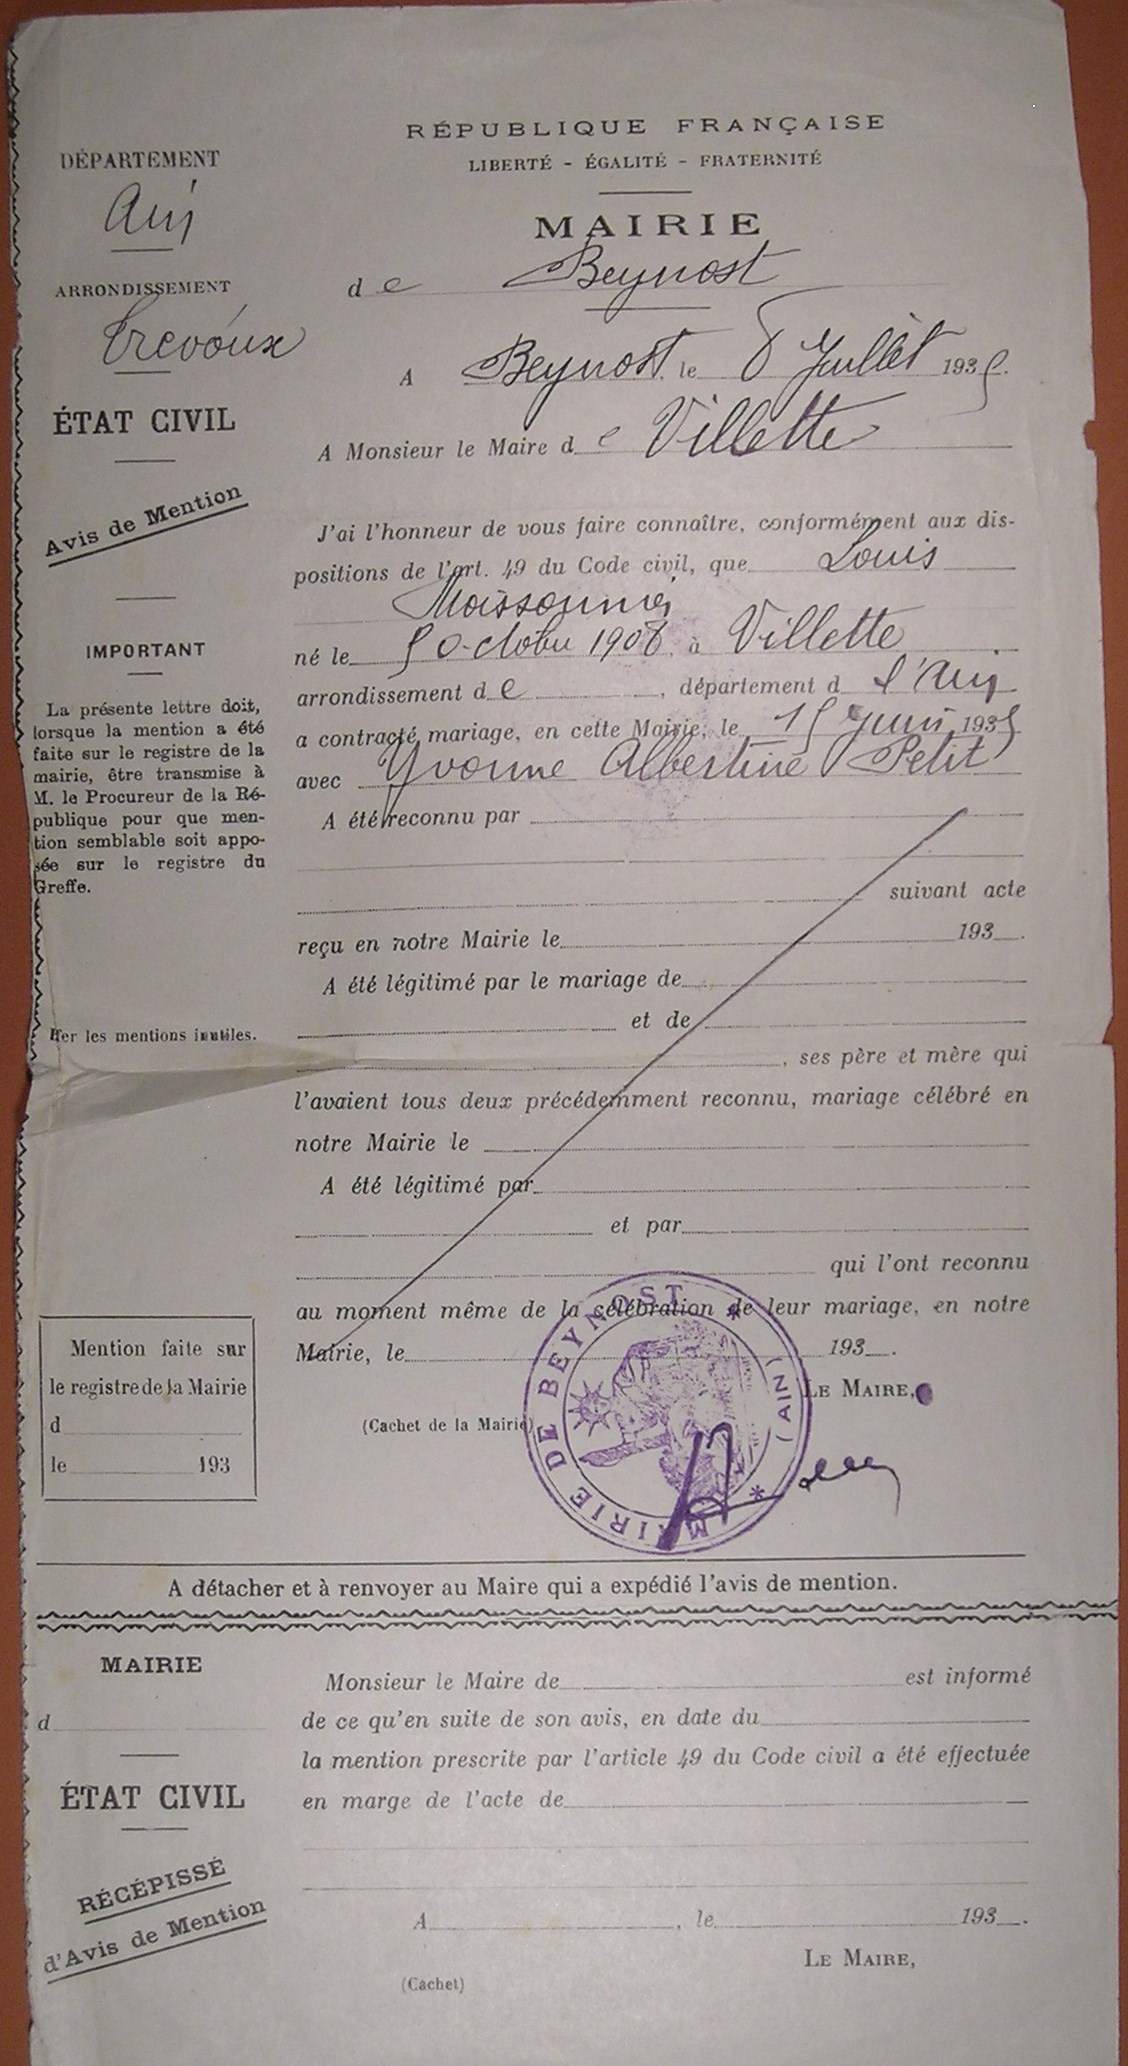 RÉPUBLIQUE FRANÇAISE
LIBERTÉ - ÉGALITÉ - FRATERNITÉ
MAIRIE
de Beynost
DÉPARTEMENT
Ain
ARRONDISSEMENT
Trevoux
ÉTAT CIVIL
Avis de Mention
IMPORTANT
La présente lettre doit,
lorsque la mention a été
faite sur le registre de la
mairie, être transmise à
M. le Procureur de la Ré-
publique pour que men-
tion semblable soit appo-
sée sur le registre du
Greffe.
A Beynost, le 8 Juillet 1935.
A Monsieur le Maire de Villette
J'ai l'honneur de vous faire connaître, conformément aux dis-
positions de l'art. 49 du Code civil, que Louis
Moissonnier
né le 5 Octobre 1908, à Villette
arrondissement de , département d l'Ain
a contracté mariage, en cette Mairie, le 15 Juin 1935
avec Yvonne Albertine Petit
A été reconnu par
suivant acte
reçu en notre Mairie le 193 .
A été légitimé par le mariage de
et de
Biffer les mentions inutiles.
, ses père et mère qui
l'avaient tous deux précédemment reconnu, mariage célébré en
notre Mairie le
A été légitimé par
et par
qui l'ont reconnu
au moment même de la célébration de leur mariage, en notre
Mairie, le 193 .
LE MAIRE,
(Cachet de la Mairie)
MAIRIE DE BEYNOST * (AIN) *
Mention faite sur
le registre de la Mairie
d
le 193
A détacher et à renvoyer au Maire qui a expédié l'avis de mention.
MAIRIE
d
ÉTAT CIVIL
RÉCÉPISSÉ
d'Avis de Mention
Monsieur le Maire de est informé
de ce qu'en suite de son avis, en date du
la mention prescrite par l'article 49 du Code civil a été effectuée
en marge de l'acte de
A , le 193 .
LE MAIRE,
(Cachet)